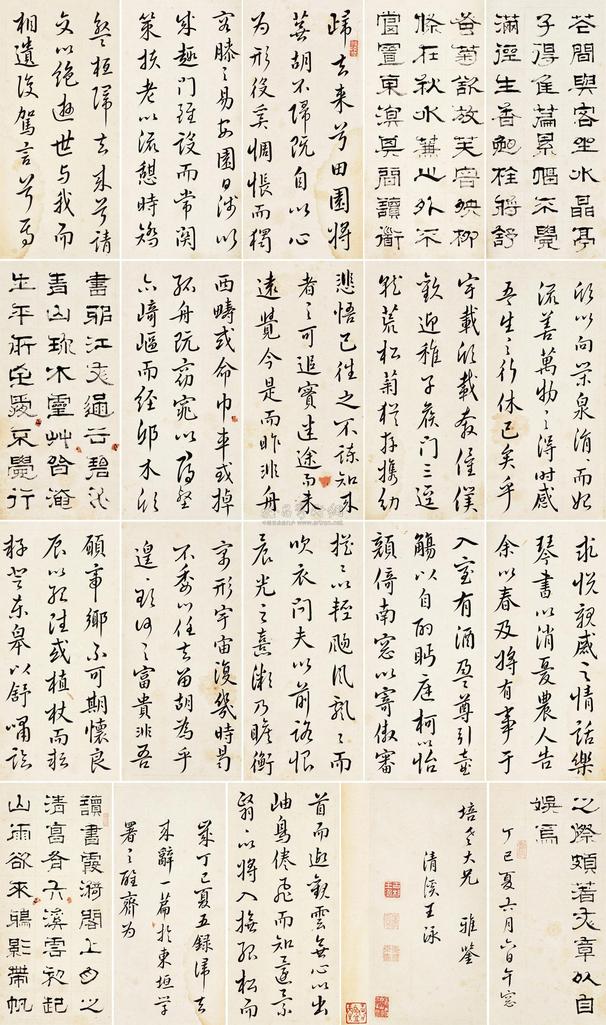 花間與客坐水晶亭
子得佳篇累幅不覺
滿徑生香
黃菊舒放芙容映柳
條在秋水蒹葭外不
當置東溟
歸去来兮田園將
蕪胡不歸既自以心
為形役奚惆悵而獨
容膝之易安園日涉以
成趣門雖設而常関
策扶老以流憩時矯
桓歸去来兮請
交以絕遊世与我而
相遺復駕言兮焉
欣以向榮泉涓〻而始
流善萬物之得时感
吾生之行休已矣乎
宇載欣載奔僮僕
歡迎稚子候门三逕
就荒松菊猶存攜幼
悲悟已往之不諫知来
者之可追實迷途而未
遠覺今是而昨非舟
西疇或命巾車或掉
孤舟既窈窕以尋壑
亦崎嶇而經邱木欣
江天過
青山水靈艸皆
生平不覺行
求悦親戚之情話樂
琴書以消憂農人告
余以春及將有事于
入室有酒盈尊引壺
觴以自酌眄庭柯以怡
顔倚南窓以寄傲審
摇〻以輕颺风飄〻而
吹衣问夫以前路恨
晨光之熹微乃瞻衡
寓形宇宙復幾时曷
不委心任去留胡為乎
遑〻欲何之富貴非吾
願帝鄉不可期懷良
辰以孤往或植杖而耘
耔登東皋以舒嘯臨
之際頗著文章以自
娛焉
丁巳夏六月六日午窓
培老大兄 雅鑒
清溪王泳
首而遐觀雲無心以出
岫鳥倦飛而知還景
翳〻以將入撫孤松而
歲丁巳夏五録歸去
来辭一篇於東垣学
署之齋为
讀書霞漪閣上月之
清喜有六溪雲初起
山雨欲来鴉影帶帆